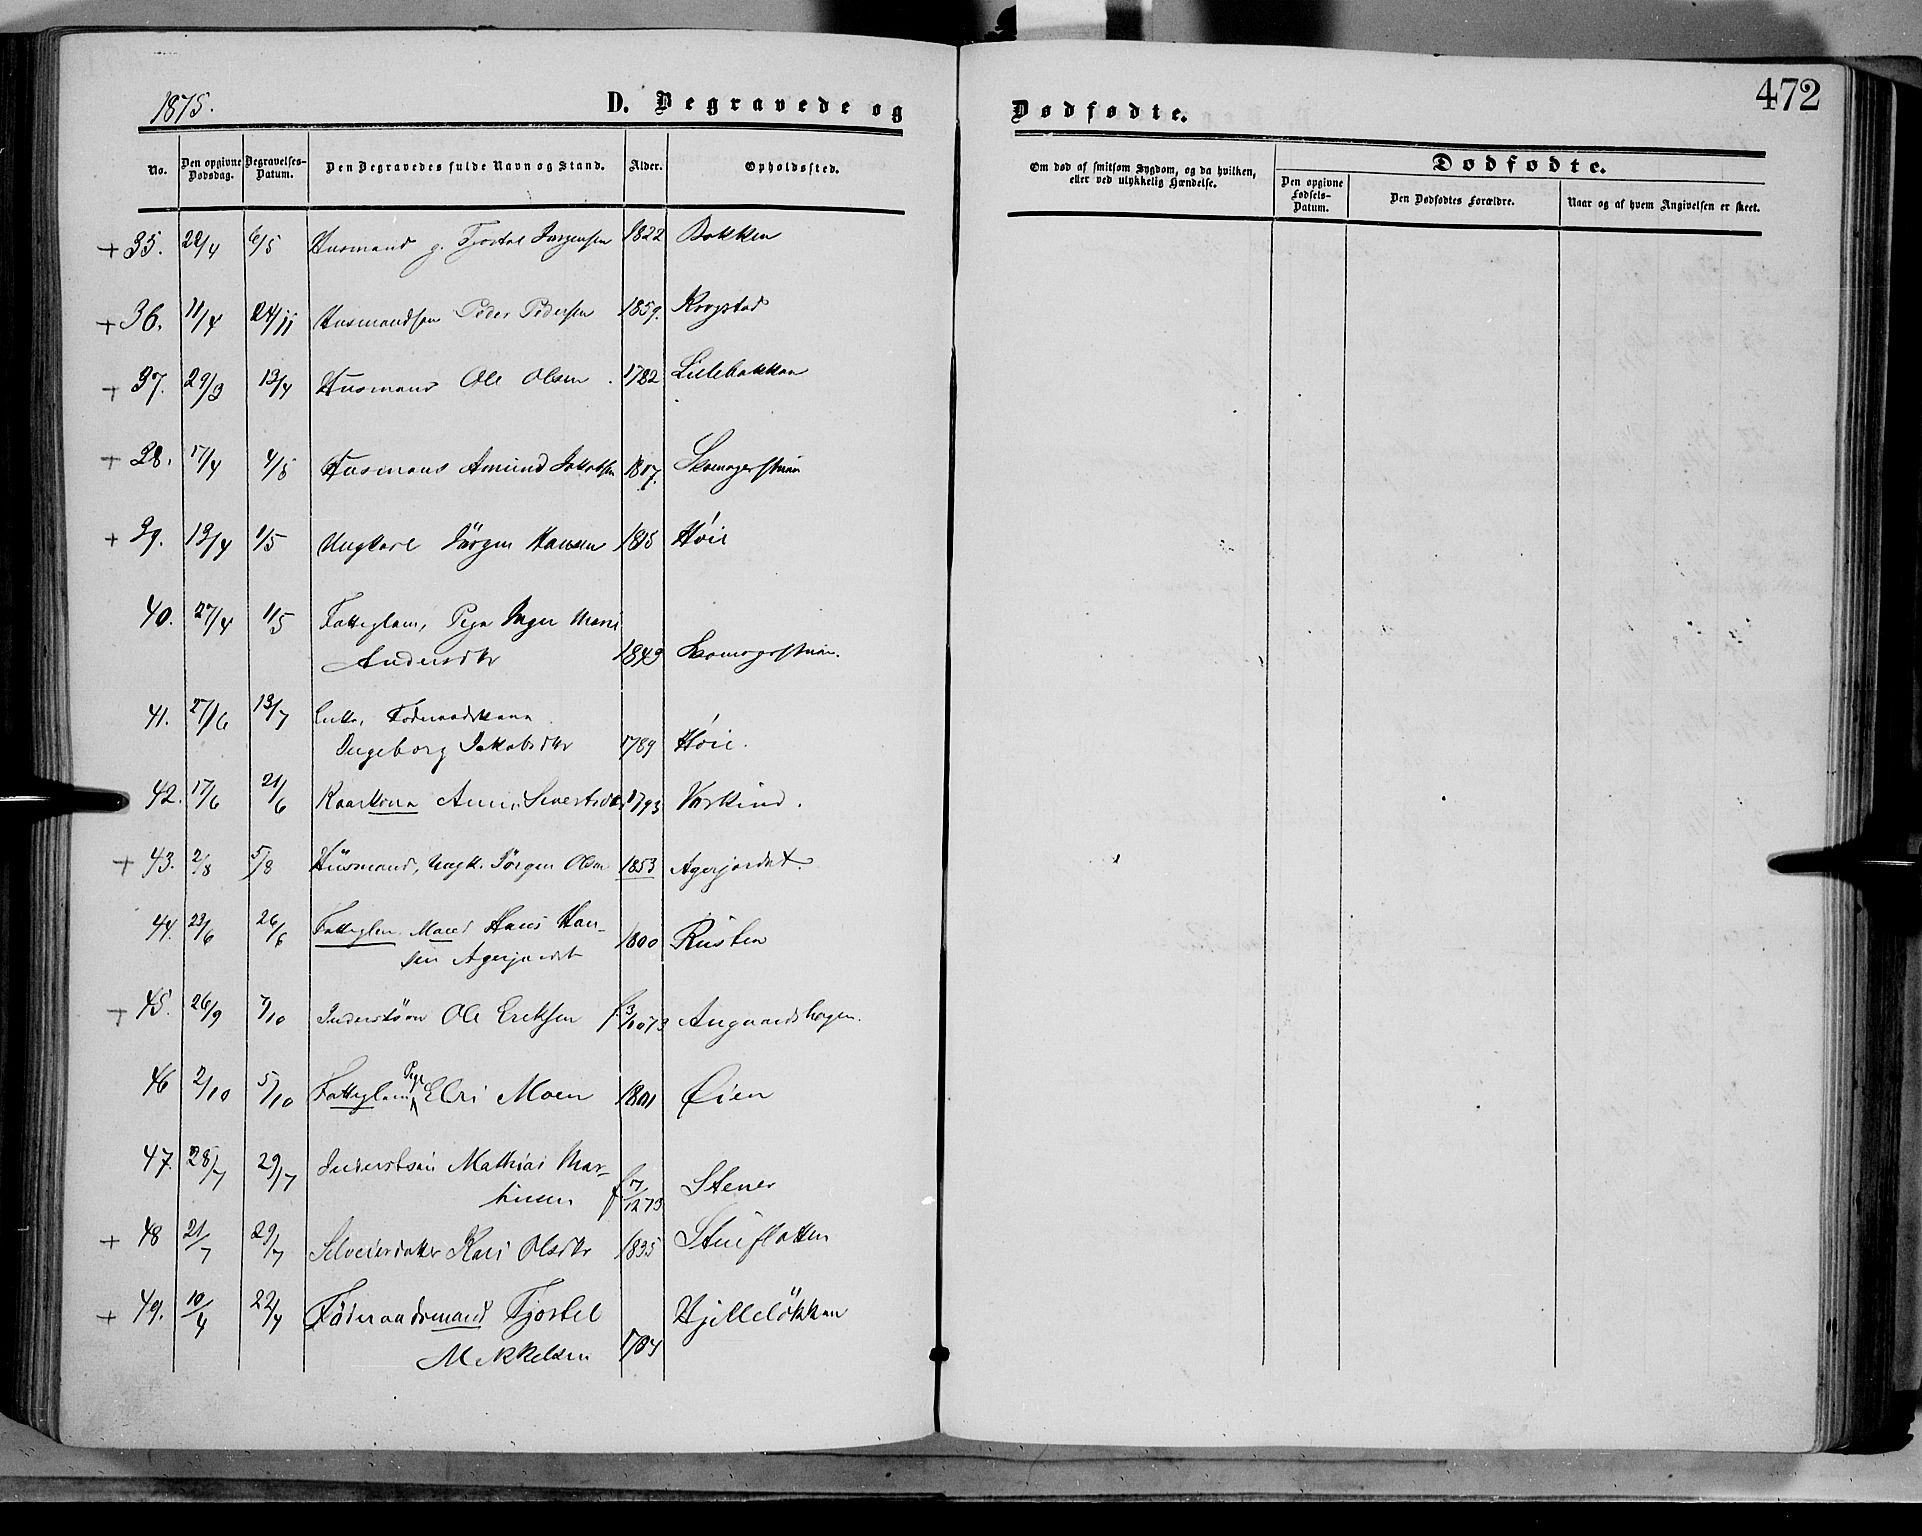 1875.
D. Begravede og
Dødfødte.
472
No.
Den opgivne Dødsdag.
Begravelses-Datum.
Den Begravedes fulde Navn og Stand.
Alder.
Opholdssted.
Om død af smitsom Sygdom, og da hvilken, eller ved ulykkelig Hændelse.
Dødfødte.
Den opgivne Fødsels-Datum.
Den Dødfødtes Forældre.
Naar og af hvem Angivelsen er skeet.
+ 35. 22/4 6/5 Husmand g. Fjostel Jørgensen 1822 Bakken
+ 36. 11/4 24/11 Husmandsøn Peder Pedersen 1859. Krogstad
+ 37. 29/3 13/4 Husmand Ole Olsen 1782 Lillebakken
+ 38. 17/4 4/5 Husmand Amund Jakobsen 1817. Skomagerstuen
+ 39. 13/4 1/5 Ungkarl Jörgen Hansen 1815 Høie
40. 27/4 1/5 Fatteglem, Pige Inger Marie
Andersdtr 1849 Skomagerstuen.
41. 27/6 13/7 Enke, Føderaadskone
Ingeborg Jakobsdtr 1789 Høie.
42. 17/6 21/6 Kaarkona Anne Sivertsdtr 1793 Vorkind.
+ 43. 2/8 5/8 Hüsmand, Ungk. Jørgen Olsen 1853 Agerjordet
44. 23/6 26/6 Fatteglem. Mand Hans Han-
sen Agerjordet 1800 Rusten
+ 45. 26/9 7/10 Inderstsøn Ole Eriksen f 3/10 73 Angaardshagen.
46 2/10 5/10 Fatteglem Pige Elsi Moen 1801 Øien
47. 28/7 29/7 Inderstsøn Mathias Mar-
thinsen f 7/12 73 Stener
+ 48 21/7 29/7 Selveierdatter Kari Olsdtr 1835 Stueflotten
+ 49. 10/4 22/4 Føderaadsmand Fjostel Hjelleløkken
Mikkelsen 1784